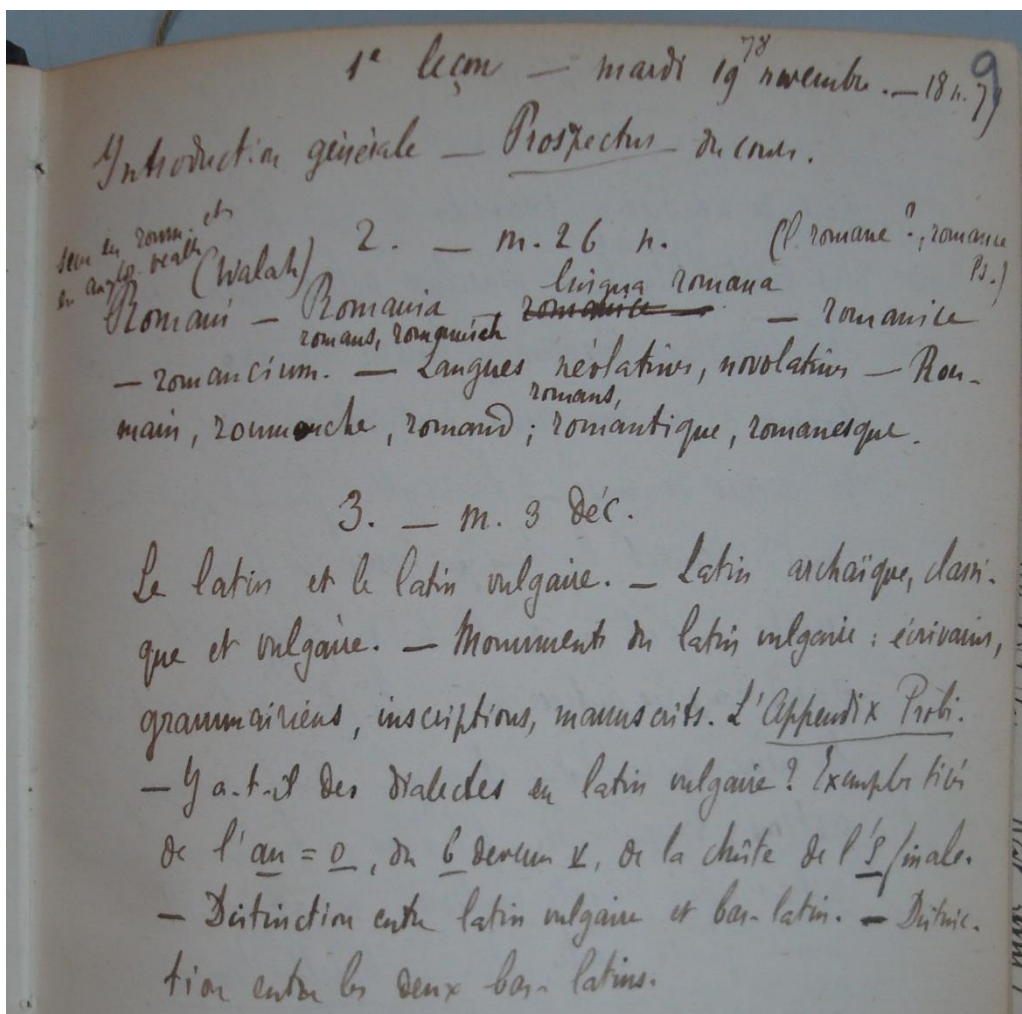 1e leçon — mardi 19 novembre. — 18 n. 78
9
Introduction générale — Prospectus du cours.
2. — m. 26 n. (l. romane ?, romance
Ps.)
sens en roum. et
en anglo-
(Walah)
lingua romana
Romani — Romania, romanice — romanice
romans, romanisch
— romancium. — Langues néolatines, novolatines — Rou-
romans,
main, roumanche, romand ; romantique, romanesque.
3. — m. 3 déc.
Le latin et le latin vulgaire. — Latin archaïque, classi-
que et vulgaire. — Monuments du latin vulgaire : écrivains,
grammairiens, inscriptions, manuscrits. L'Appendix Probi.
— Y a-t-il des dialectes en latin vulgaire ? Exemples tirés
de l'au = o, du b devenu v, de la chûte de l's finale.
— Distinction entre latin vulgaire et bas-latin. — Distinc-
tion entre les deux bas-latins.